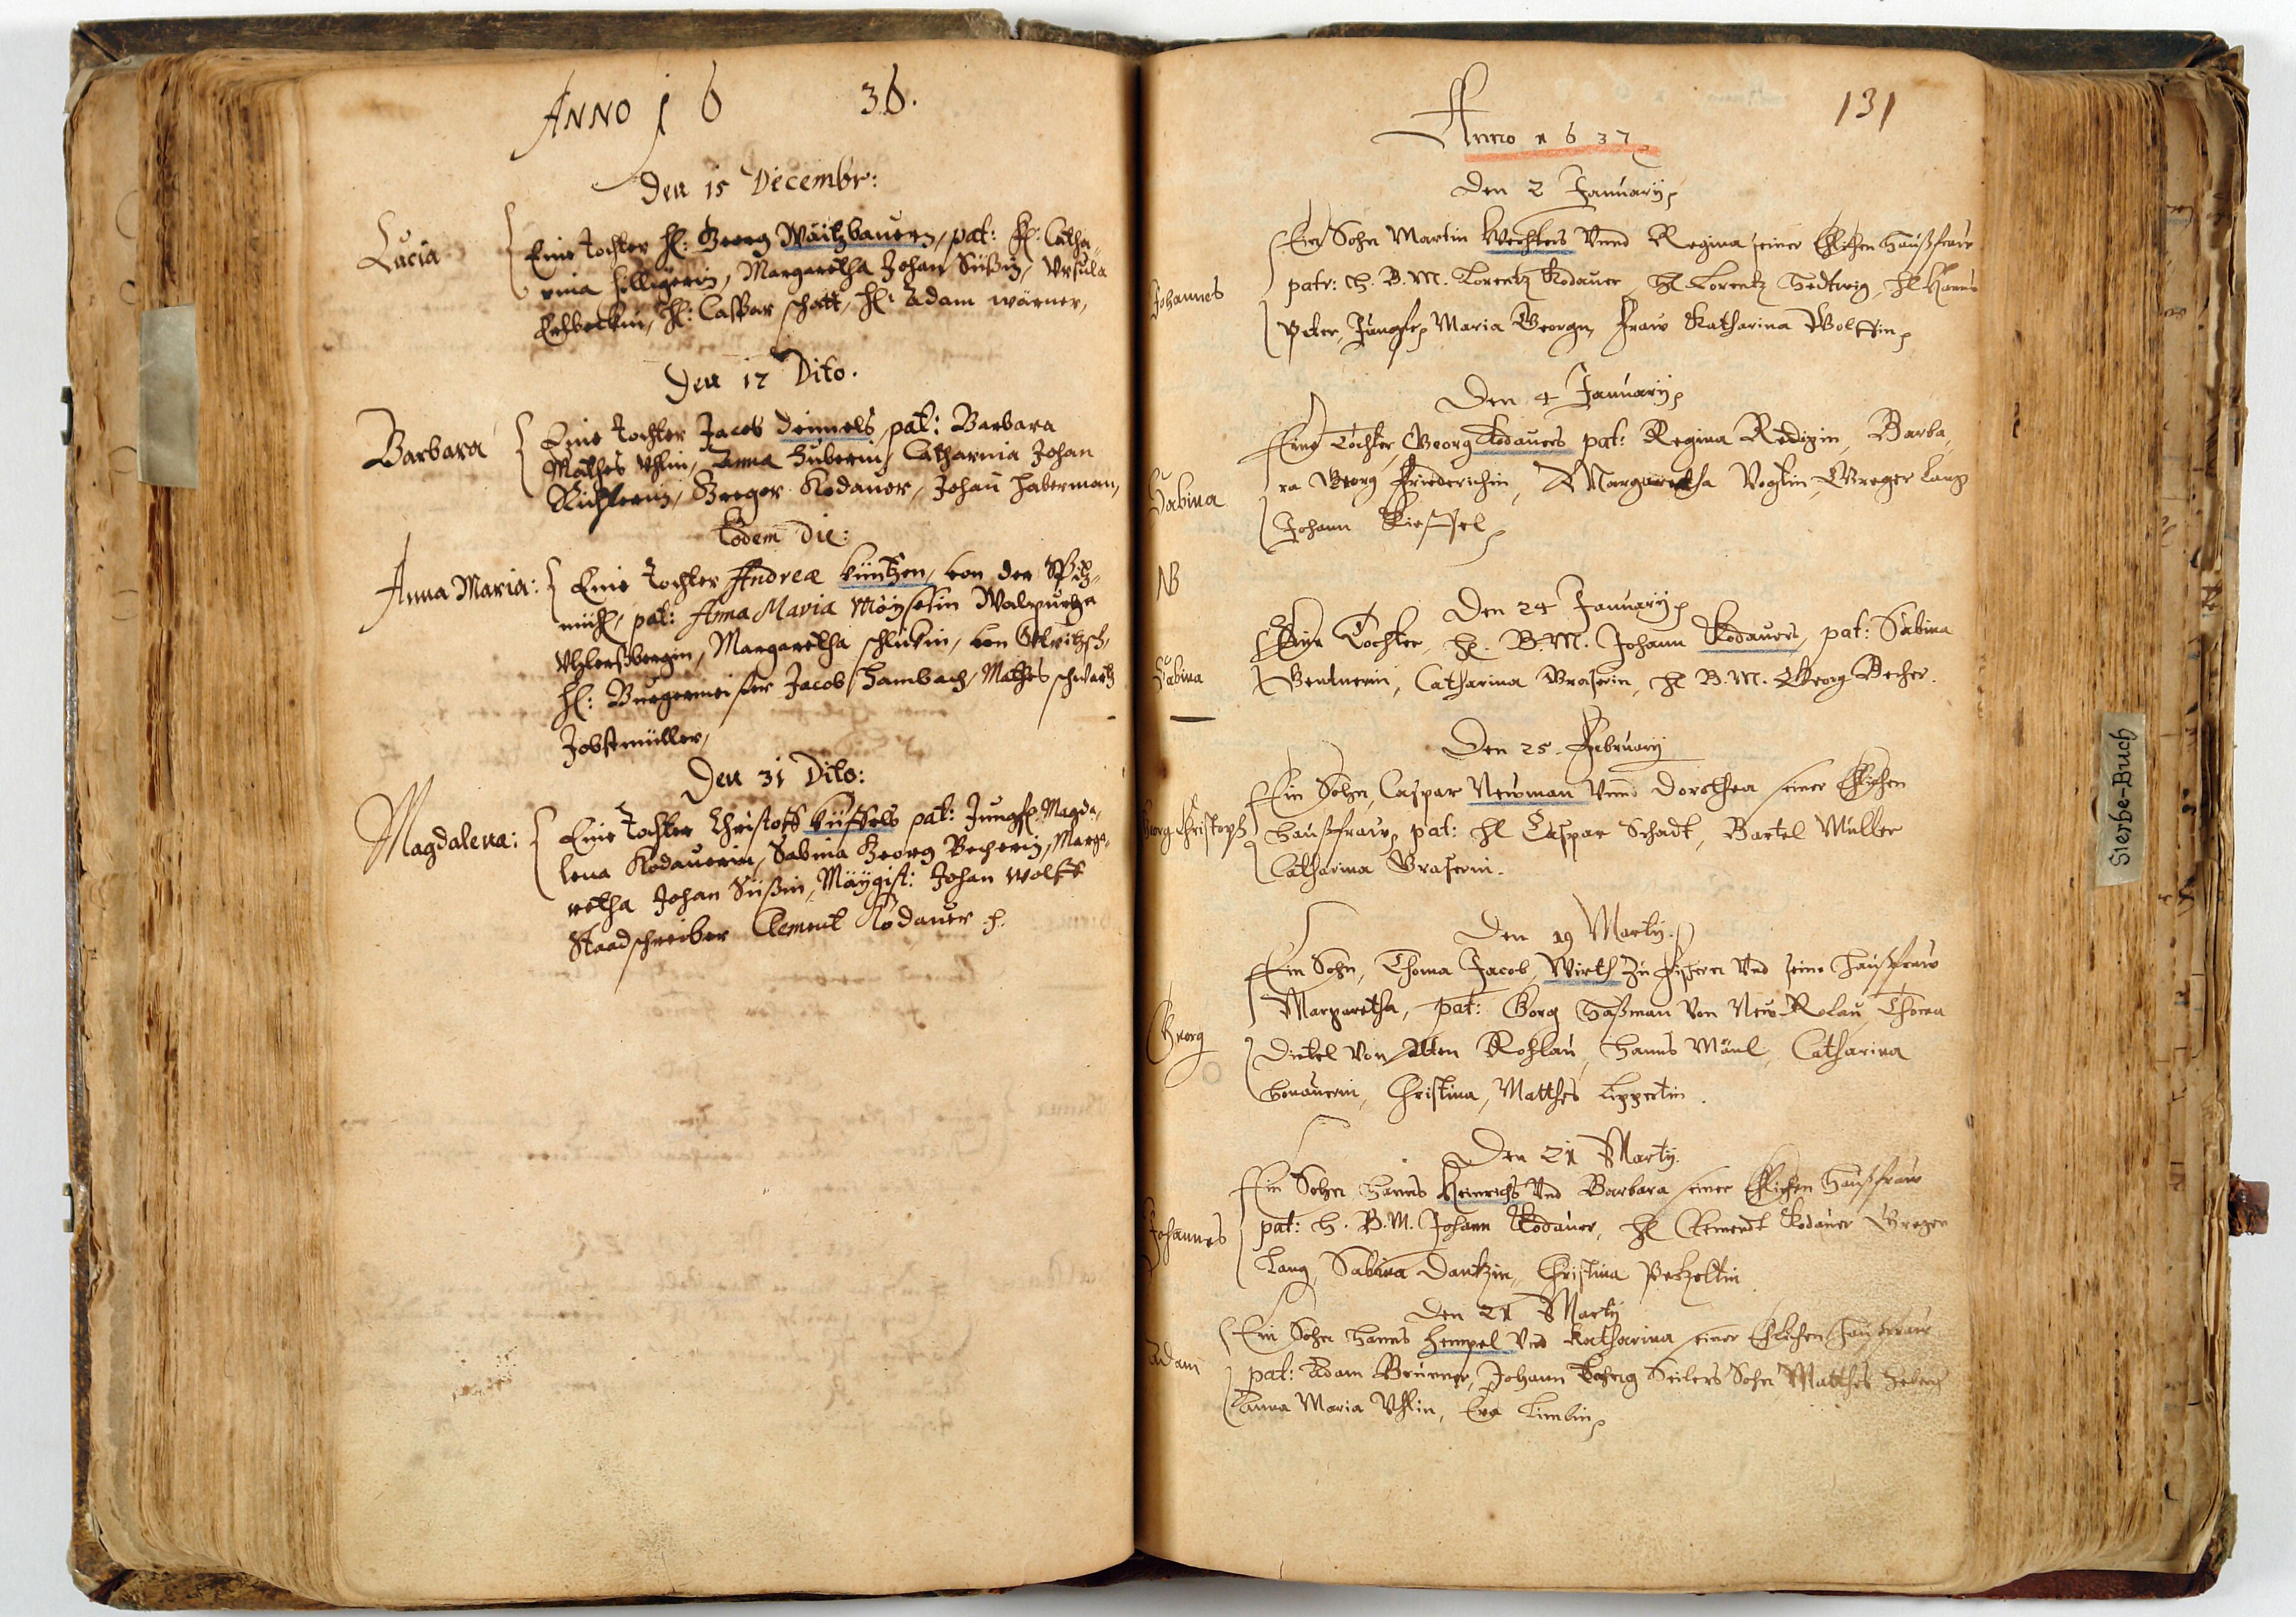 ANNO 16 36.
Den 15 Decembr:
Lucia
Eine Tochter H: Georg Waitzbauern, pat: H: Catha-
rina Margaretha Johan Süßin, Ursula
H: Caspar schatt, H: Adam wärner,
Den 17 Dito.
Barbara
Eine Tochter Jacob Deimels pat: Barbara
Mathes Uhlin, Anna Huberin, Catharina Johan
Richterin, Greger Kodauer, Johan Haberman,
Eodem Die:
Anna Maria:
Eine Tochter Andreæ küntzen, von der Spitz-
mühl, pat: Anna Maria Möysesin Walpurga
Margaretha schlickin, von
H: Burgermeister Jacob Hambach, Mathes schwartz
Jobstmüller,
Den 31 Dito:
Magdalena:
Eine Tochter Christoff küssels pat: Jungf. Magda-
lena Kodauerin, Sabina Georg Becherin, Marga-
retha Johan Süßin, Johan Wolff
Staadschreiber Clement Kodauer
131
Anno 1637
Den 2 January
Johannes
Ein Sohn Martin Unnd Regina seiner Ehlichen Haußfraw
patr: H. B. M. Lorentz Kodauer, H Lorentz Hedtwig, H Hanns
Peter, Jungfr Maria Georgn, Fraw Katharina Wolffin
Den 4 January
Sabina
Eine Tochter Georg Kodauers pat: Regina Barba-
ra Georg Friederichin, Margaretha Voglin Greger Lang
Johann Kiessel
NB
Den 24 January
Sabina
Eine Tochter, H. B. M. Johann Kodauers, pat: Sabina
Catharina Graserin, H B. M. Georg Becher.
Den 25. February
Georg Christoph
Ein Sohn, Caspar Newman Unnd Dorothea seiner Ehlichen
Haußfraw pat: H Caspar Schadt, Bartel Müller
Catharina Graserin.
Den 19 Marty.
Georg
Ein Sohn, Thoma Jacob, Wirth Zu Fischern Und seine Haußfraw
Margaretha, pat: Gorg Haßman Von New-Rolau, Thoma
Dietel Von Alten Rohlau, Hanns Mänl, Catharina
Christina, Matthes Lippertin.
Den 21 Marty.
Johannes
Ein Sohn Hanns Heinrichs Und Barbara seiner Ehlichen Haußfraw
pat: H. B. M. Johann Kodauer, H Clemendt Kodauer Greger
Lang, Sabina Dantzin, Christina Petzoltin
Den 21 Marty
Adam
Ein Sohn Hanns Hempel Und Katharina seiner Ehlichen Haußfraw
pat: Adam Brunner, Johann Seilers Sohn Matthes
Anna Maria Uhlin, Eva Limbin
Sterbe-Buch